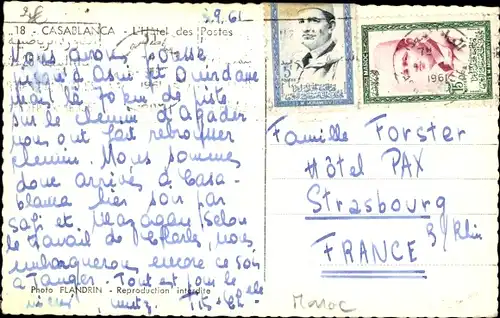 18 - CASABLANCA - L'Hôtel des Postes
9.61
Nous avons poussé
jusqu'à Asni et Ouirdane
mais là 70 km de piste
sur le chemin d'Agadir
nous ont fait rebrousser
chemin. Nous sommes
donc arrivés à Casa-
blanca hier soir par
Safi et Mazagan. Selon
le travail de Charle, nous
embarquerons encore ce soir
à Tanger. Tout est pour le
Photo FLANDRIN - Reproduction interdite
Famille Forster
Hôtel PAX
Strasbourg
FRANCE
s/Rhin
Maroc
1961
1961